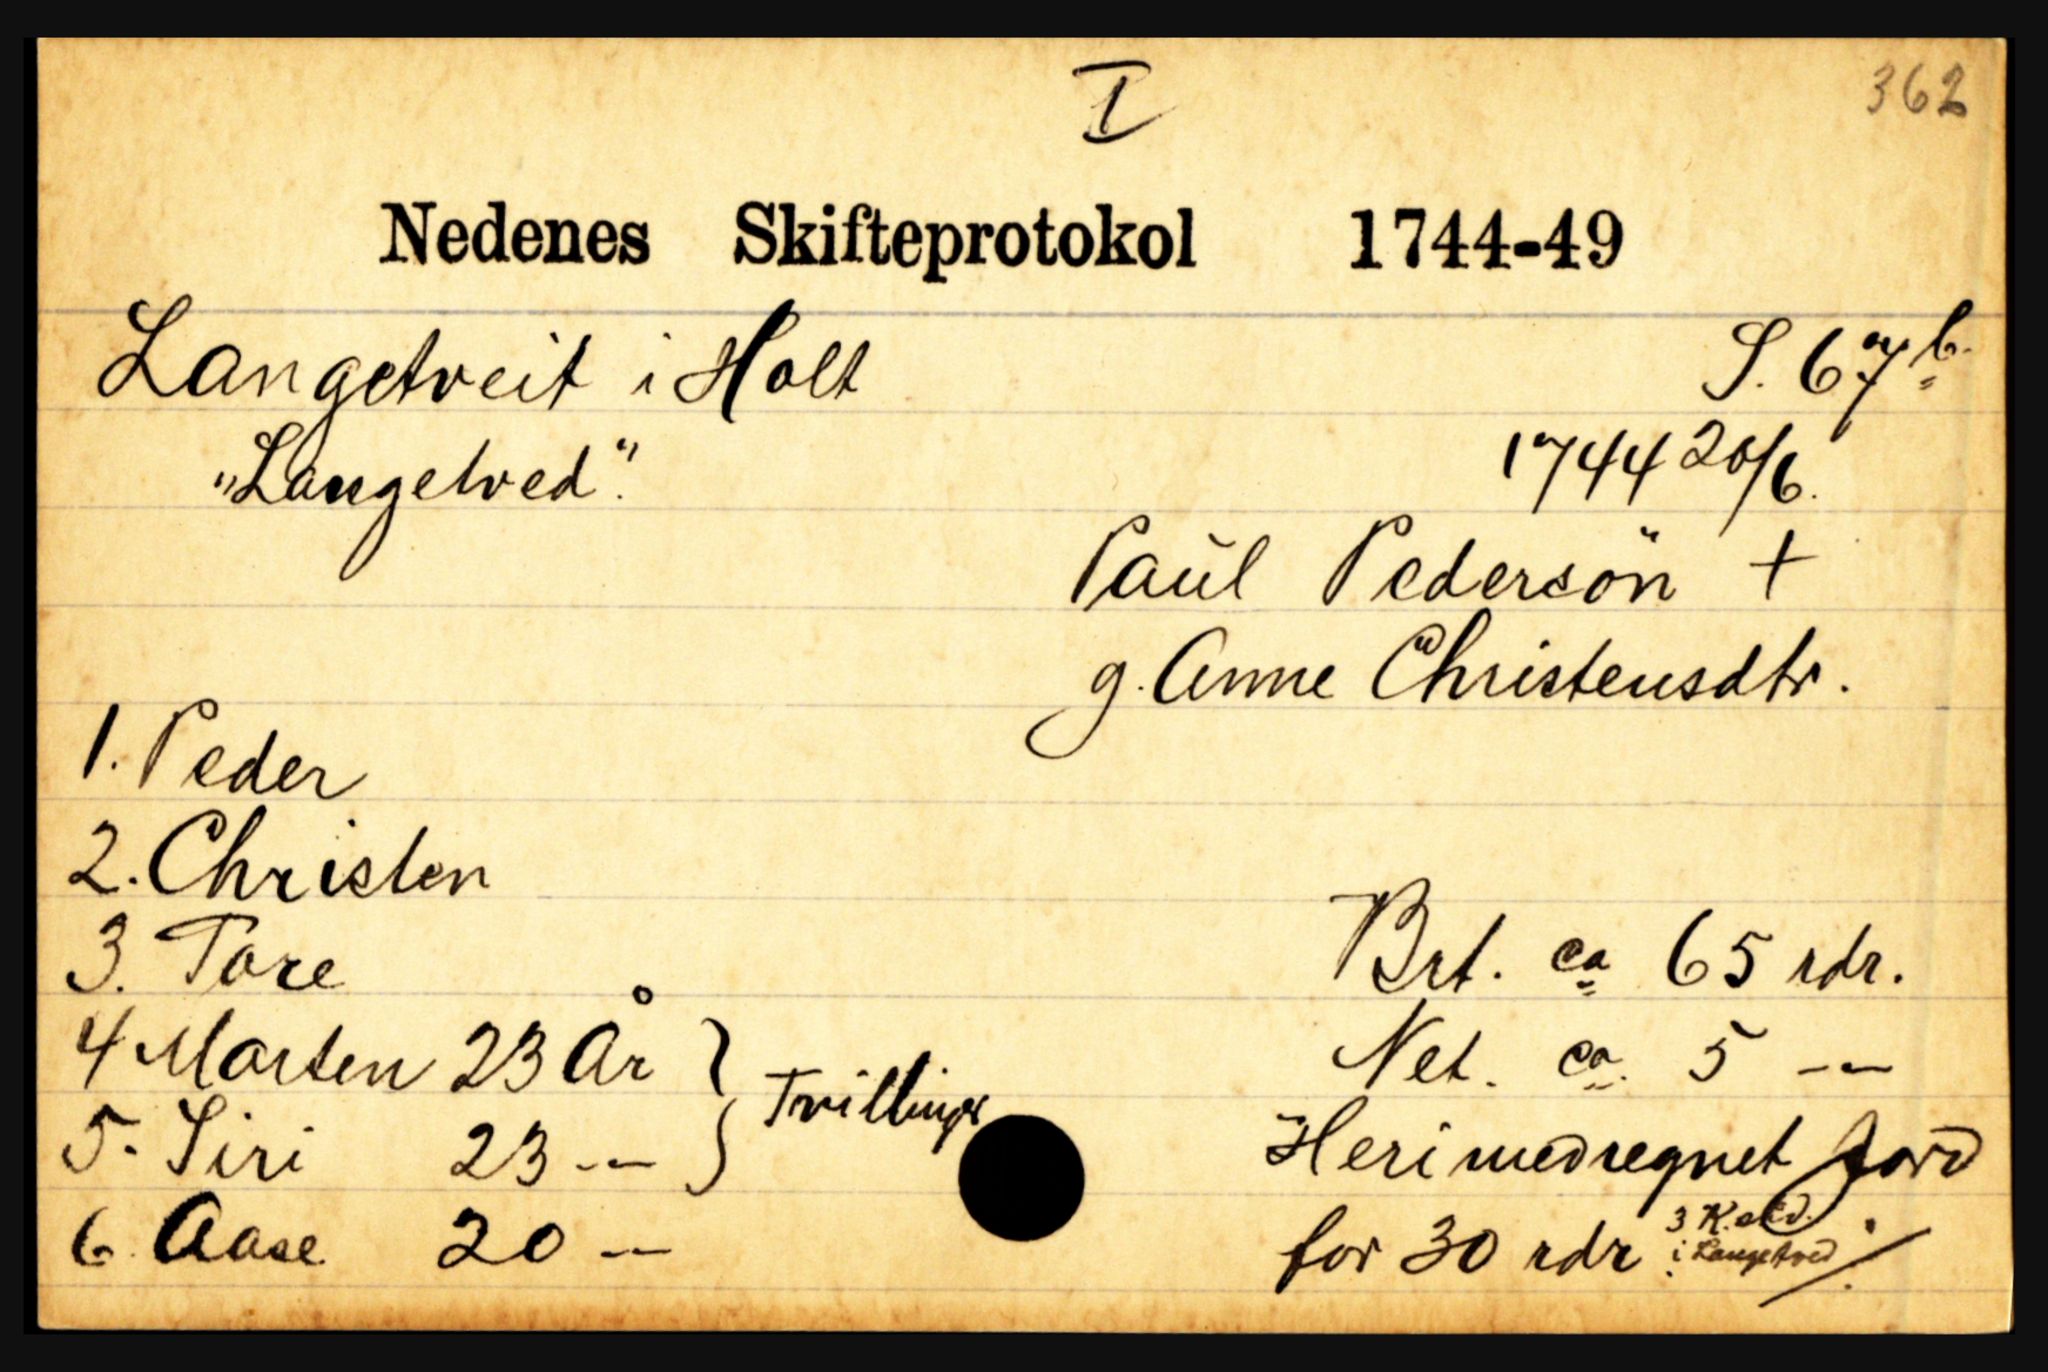 I
362
Nedenes Skifteprotokol 1744-49
Langetveit i Holt S. 67b.
"Langetved". 1744 20/6.
Paul Pedersön +
g. Anne Christensdtr.
1. Peder
2. Christen
3. Tore Brt. ca 65 rdr.
4 Morten 23 År } Tvillinger Net. ca. 5 --
5. Siri 23 -- Heri medregnet Jord
6. Aase 20 -- for 30 rdr 3 K. i Langetved ./.